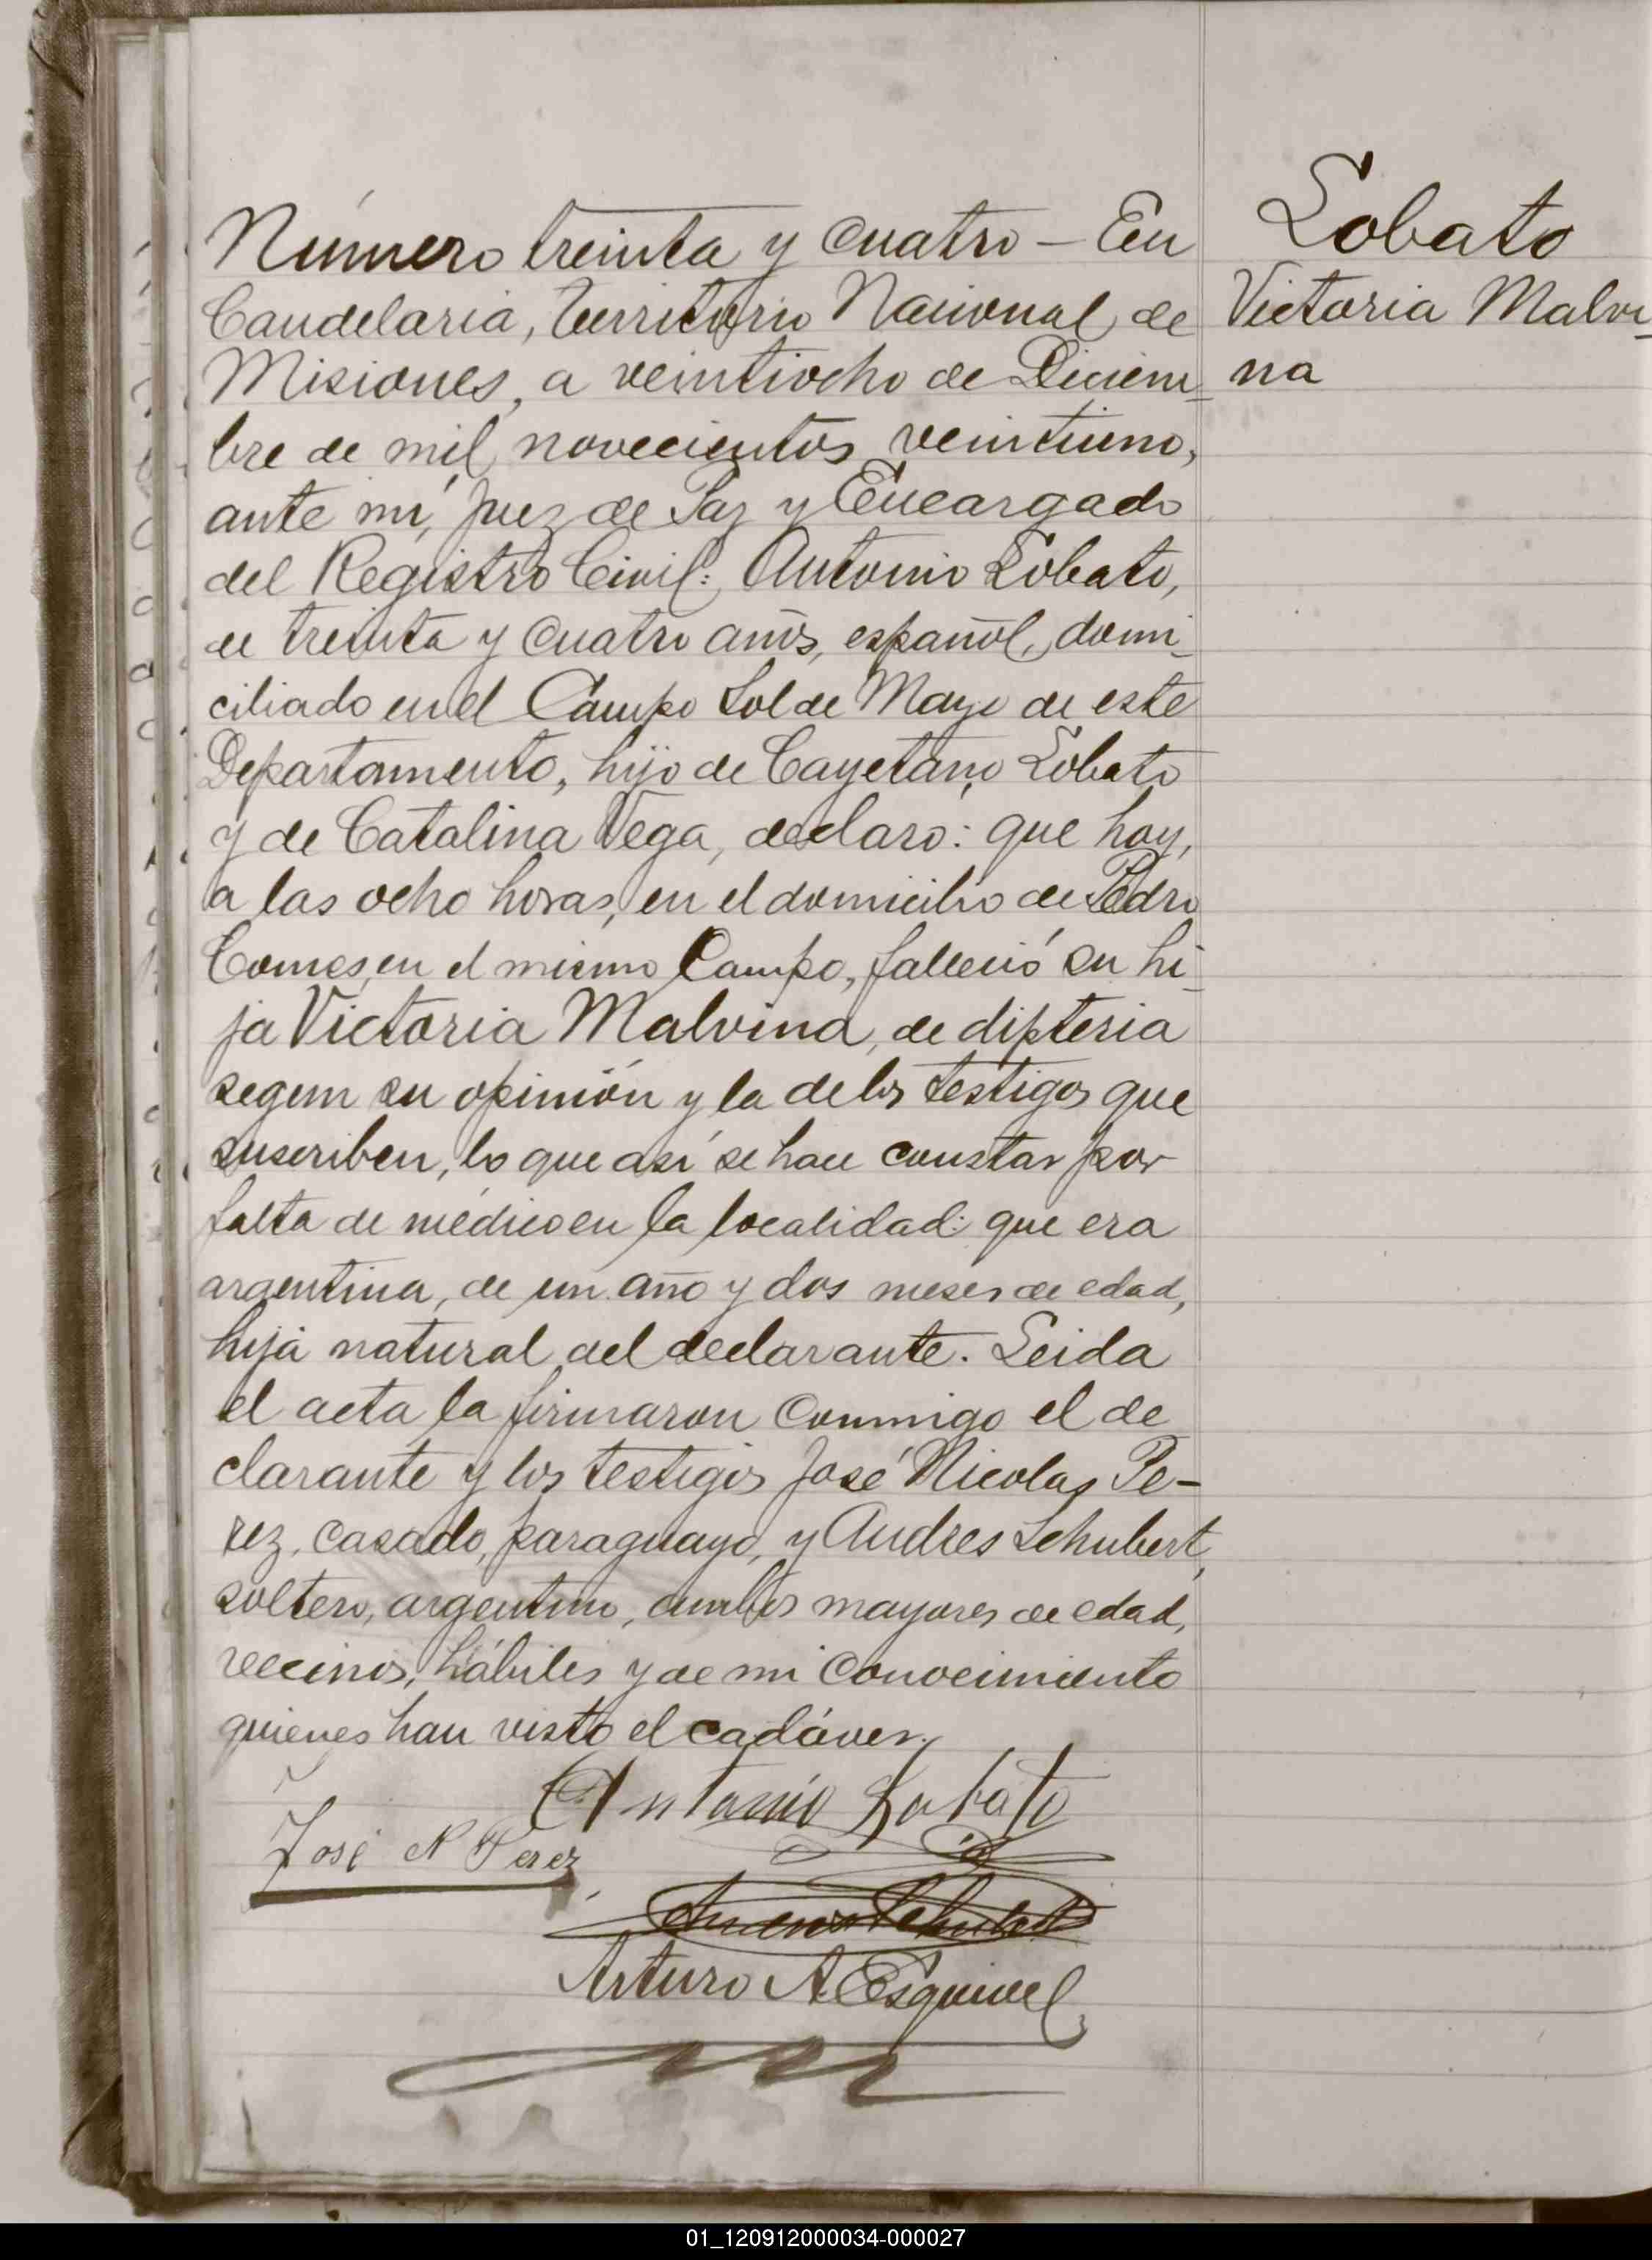 Número treinta y cuatro – En
Candelaria, Territorio Nacional de
Misiones, a veintiocho de Diciem-
bre de mil novecientos veintiuno,
ante mí, Juez de Paz y Encargado
del Registro Civil: Antonio Lobato,
de treinta y cuatro años, español, domi-
ciliado en el Campo Sol de Mayo de este
Departamento, hijo de Cayetano Lobato
y de Catalina Vega, declaro: que hoy,
a las ocho horas, en el domicilio de Pedro
Comes, en el mismo Campo, falleció su hi-
ja Victoria Malvina, de difteria
segun su opinión y la de los testigos que
suscriben, lo que así se hace constar por
falta de médico en la localidad: que era
argentina, de un año y dos meses de edad,
hija natural del declarante. Leida
el acta la firmaron conmigo el de
clarante y los testigos José Nicolas Pe-
rez, casado, paraguayo, y Andres Schubert,
soltero, argentino, ambos mayores de edad,
vecinos, hábiles y de mi conocimiento
quienes han visto el cadáver.
Antonio Lobato
José N Perez
Andres Schubert
Arturo A. Esquivel
Lobato
Victoria Malvi-
na
01_120912000034-000027